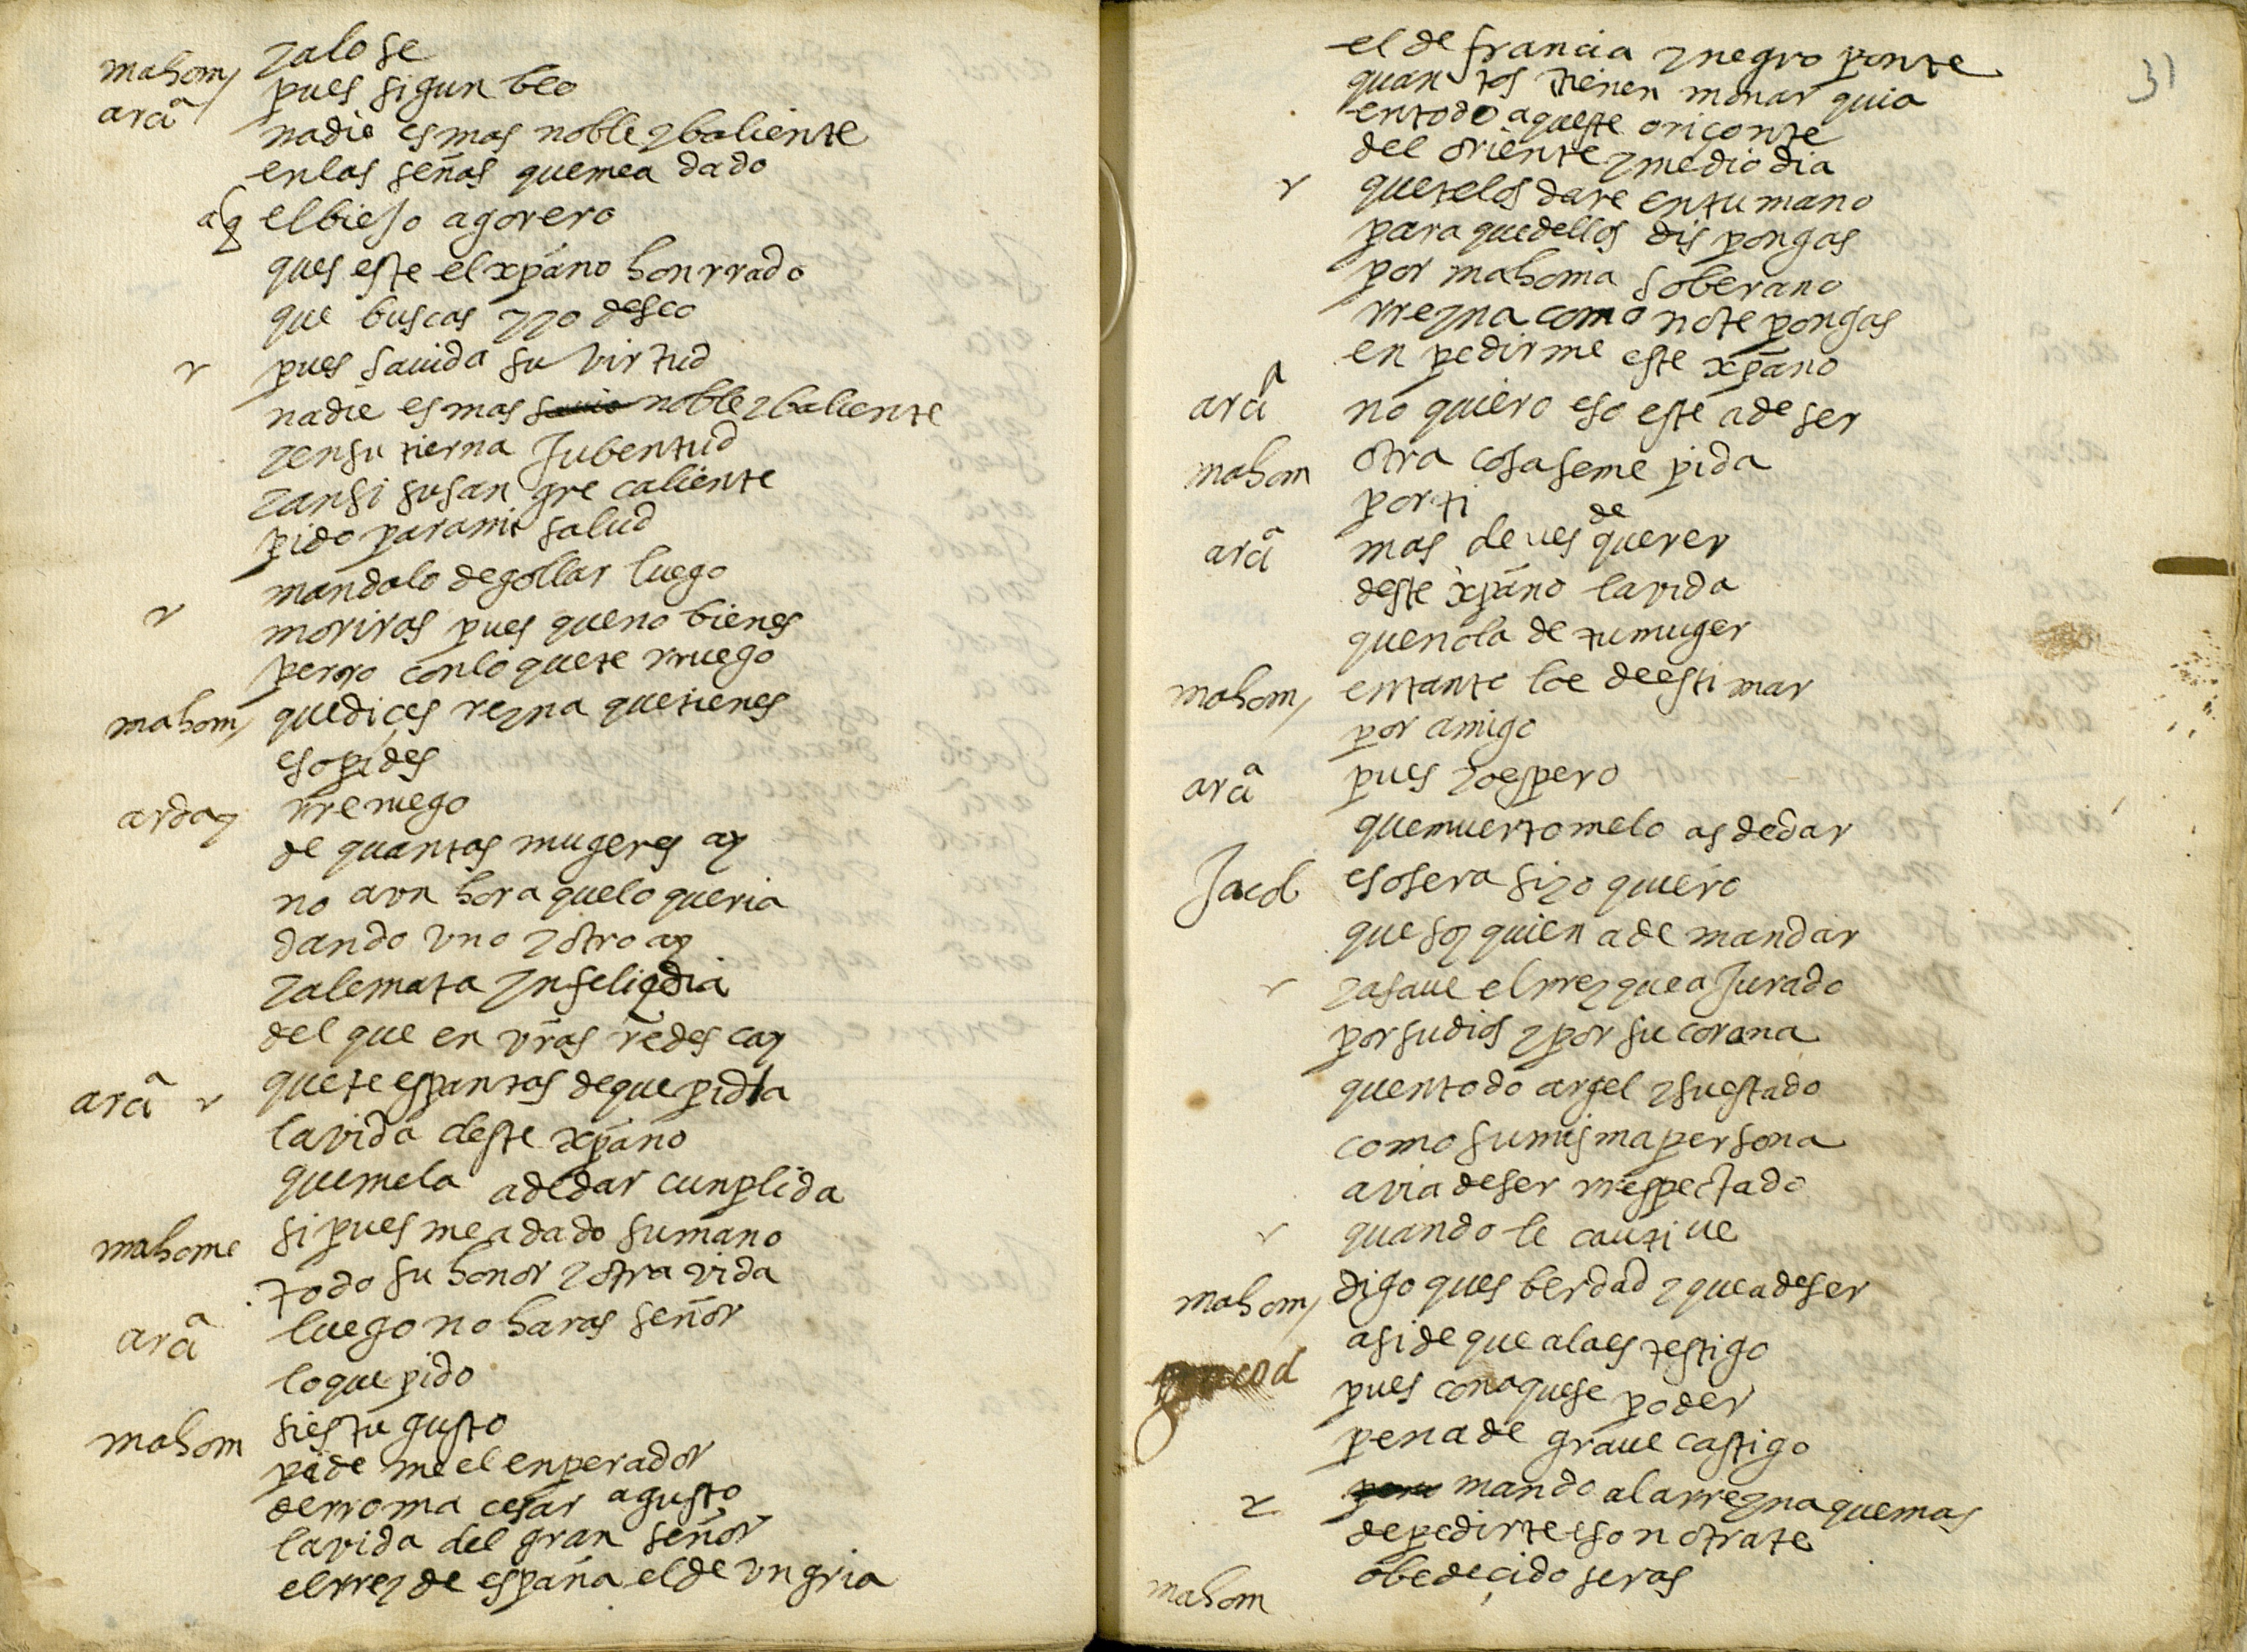 yalo se
mahom, pues sigun beo
arã nadie es mas noble y baliente
en las señas que mea dado
el biejo agorero
ques este el xpãno honrrado
que buscas y yo deseo
pues sauida su virtud
nadie es mas sauio noble y baliente
y en su tierna Jubentud
y ansi su sangre caliente
pido para mi salud
mandalo degollar luego
moriras pues que no bienes
perro con lo que te rruego
mahom, que dices reyna que tienes
eso pides
arday rreniego
de quantas mugeres ay
no avn hora que lo queria
dando vno y otro ay
y ale mata ynfeliçdia
del que en vr̃as redes cay
arã que te espantas de que pida
la vida deste xpãno
que mela a de dar cunplida
mahome si pues me a dado su mano
todo su honor y otra vida
arã luego no haras señor
lo que pido
mahom si es tu gusto
pide me el enperador
de rroma cesar agusto
la vida del gran señor
el rrey de españa el de vngria
31
el de francia y negro ponte
quantos tienen monarquia
en todo aqueste oriçonte
del oriente y medio dia
que telos dare en tu mano
para que dellos dispongas
por mahoma soberano
rreyna como no te pongas
en pedirme este xpãno
arã no quiero eso este a de ser
mahom otra cosa se me pida
por ti
arã mas deues de querer
deste xpãno la vida
que no la de tu muger
mahom, en tanto loe de estimar
por amigo
arã pues yo espero
que muerto melo as de dar
Jacob eso sera si yo quiero
que soy quien a de mandar
y a saue el rrey que a Jurado
por su dios y por su corona
quen todo argel y su estado
como su misma persona
avia de ser rrespectado
quando le cautiue
mahom, digo ques berdad y que a de ser
asi de que ala es testigo
pues con aquese poder
pena de graue castigo
pero mando a la rreyna que mas
de pedirte eso no trate
mahom obedeçido seras